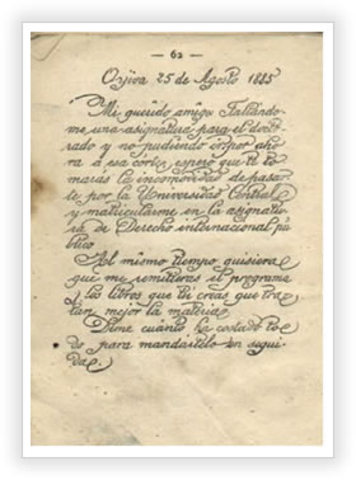 — 62 —
Orjiva 25 de Agosto 1885
Mi querido amigo: Faltándo-
me una asignatura para el docto-
rado y no pudiendo ir por aho-
ra á esa corte, espero que te to-
marás la incomodidad de pasar-
te por la Universidad Central
y matricularme en la asignatu-
ra de Derecho internacional pú-
blico
Al mismo tiempo quisiera
que me remitieras el programa
y los libros que tú creas que tra-
tan mejor la materia
Dime cuánto ha costado to-
do para mandártelo en segui-
da.